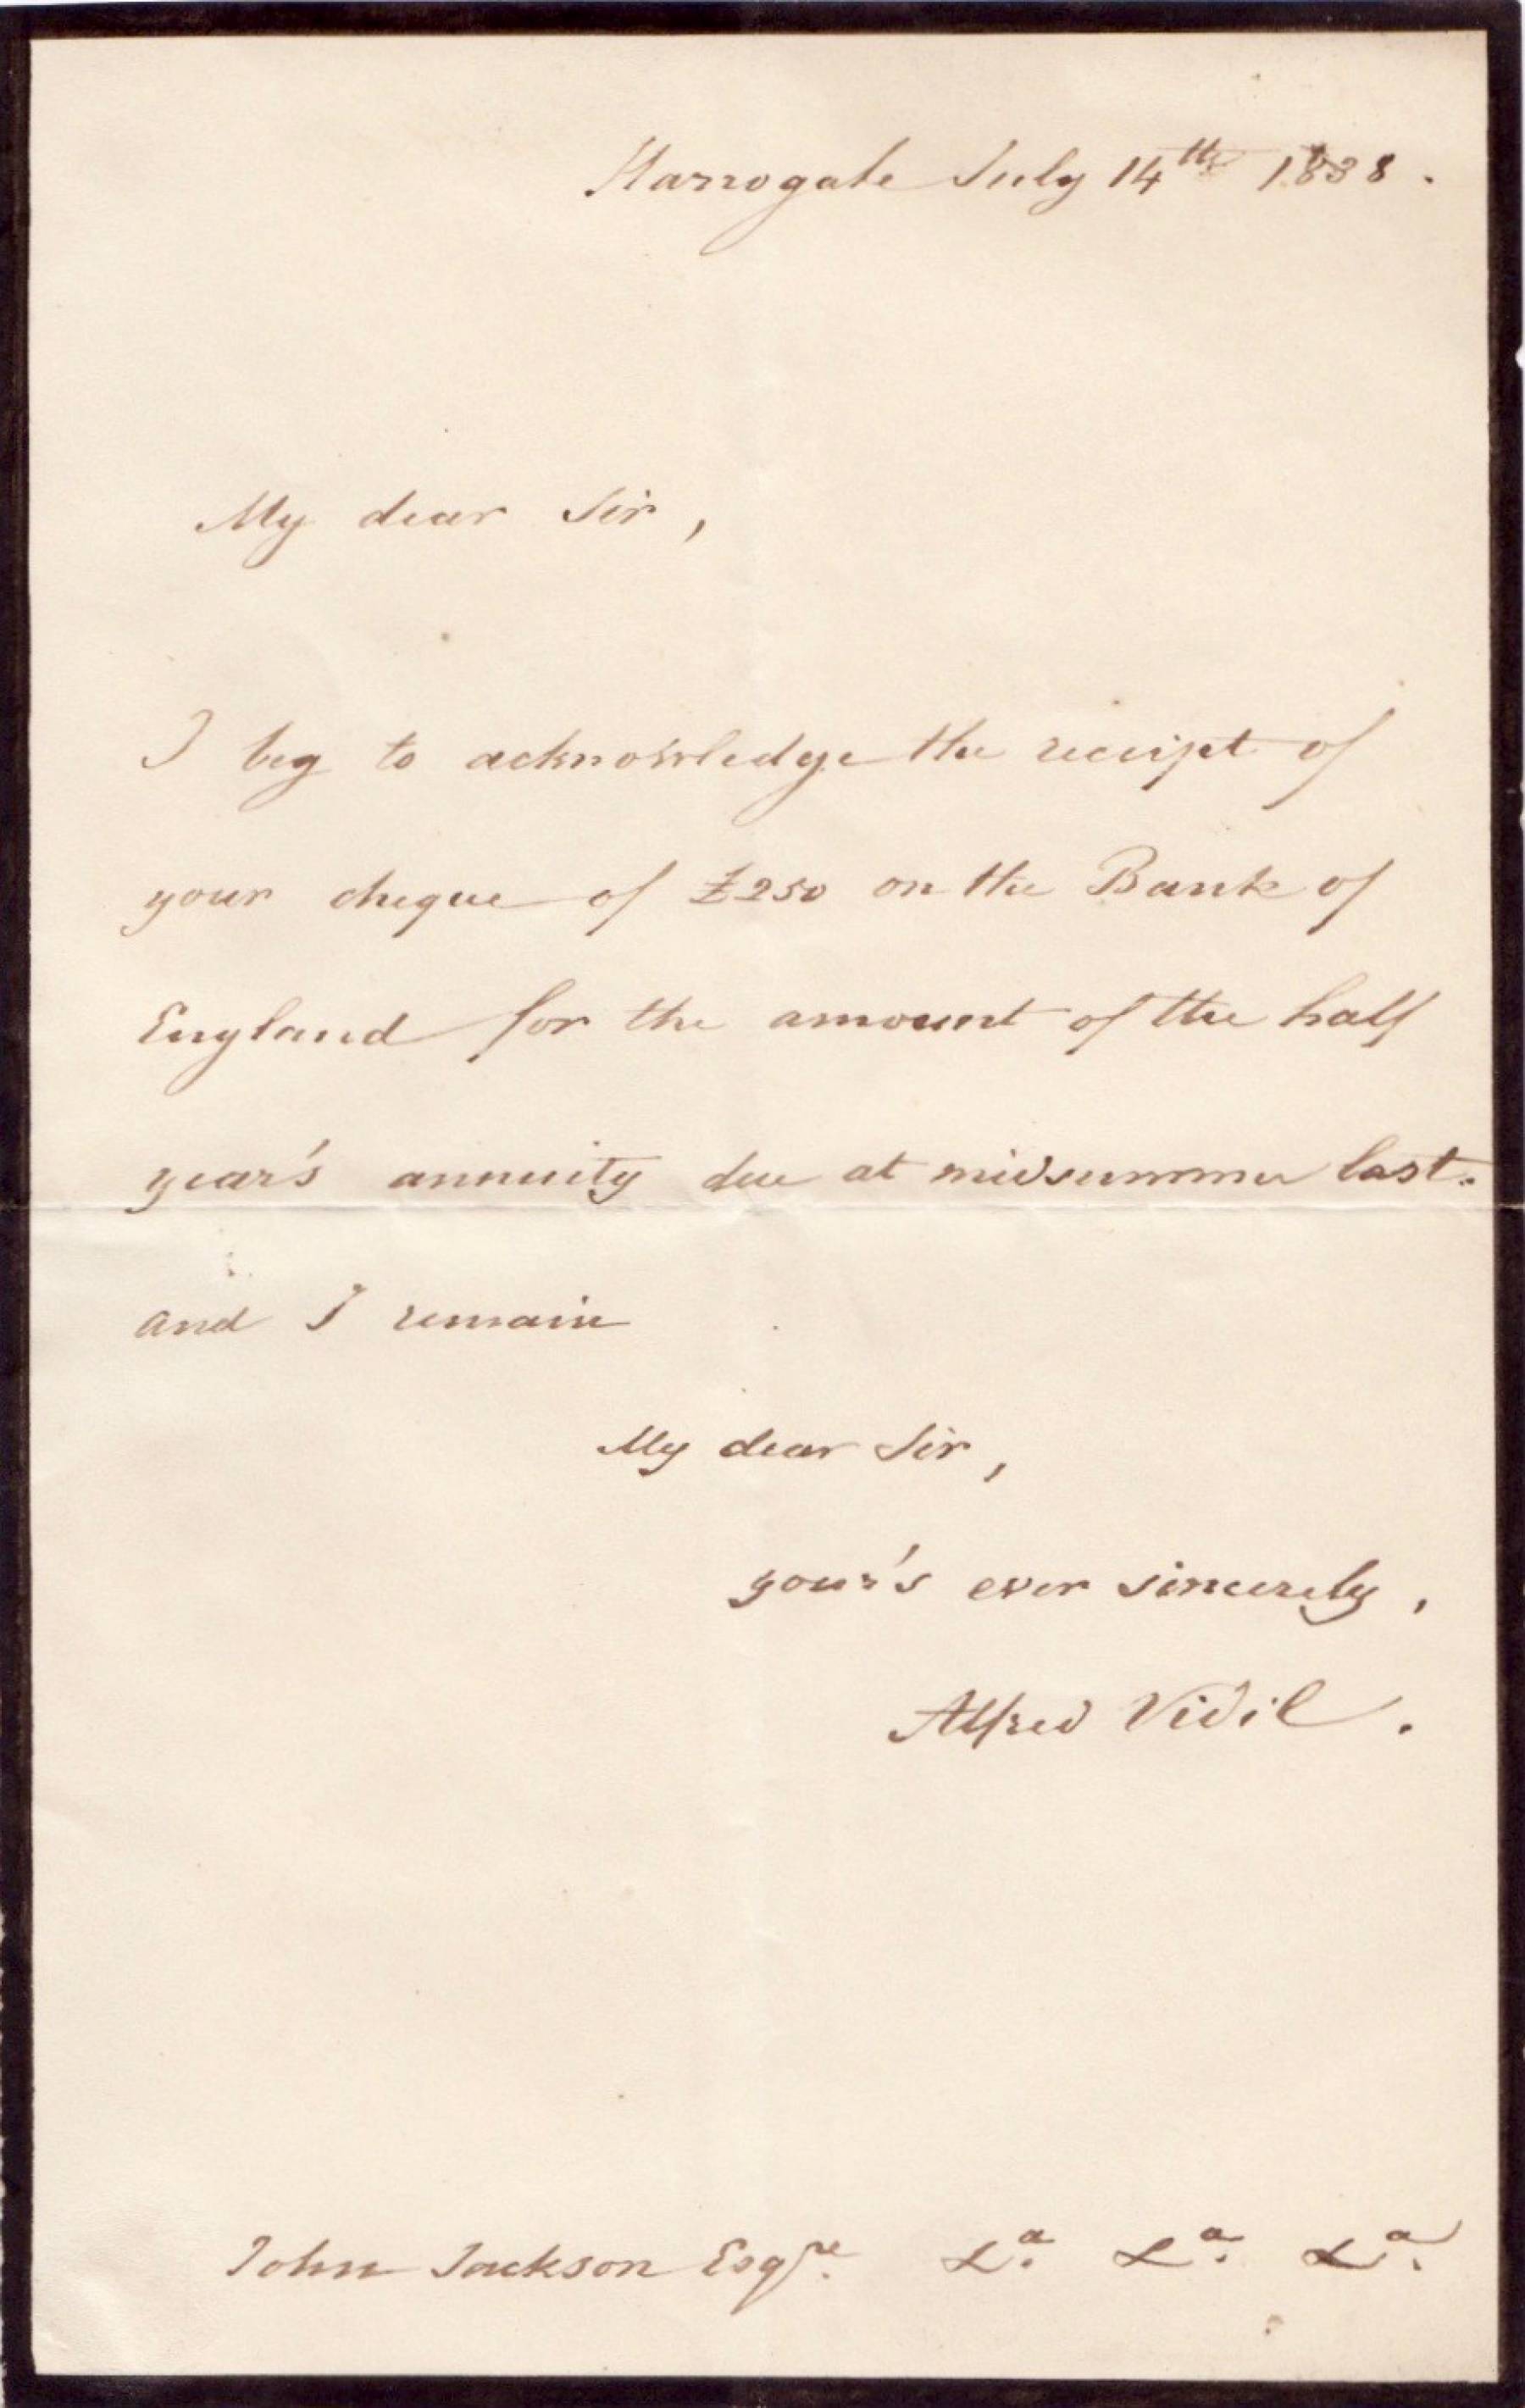 Harrogate July 14th 1838.
My dear Sir,
I beg to acknowledge the receipt of
your cheque of £250 on the Bank of
England for the amount of the half
year's annuity due at midsummer last.
and I remain
My dear Sir,
your's ever sincerely,
Alfred Vidil.
John Jackson Esqre. &a. &a. &a.